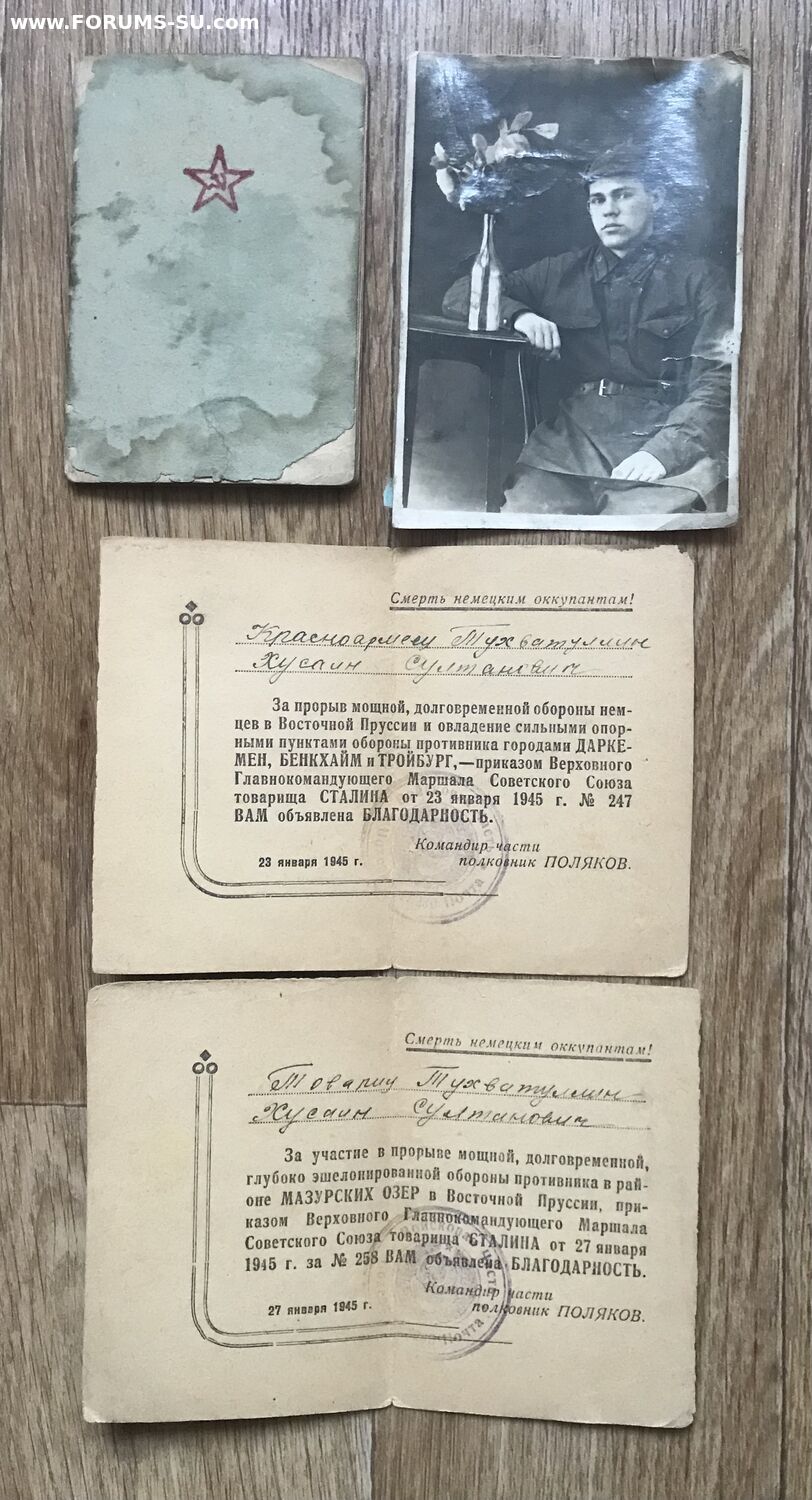 www.FORUMS-SU.com
Смерть немецким оккупантам!
Красноармеец Тухватуллин
Хусаин Султанович
За прорыв мощной, долговременной обороны нем-
цев в Восточной Пруссии и овладение сильными опор-
ными пунктами обороны противника городами ДАРКЕ-
МЕН, БЕНКХАЙМ и ТРОЙБУРГ,—приказом Верховного
Главнокомандующего Маршала Советского Союза
товарища СТАЛИНА от 23 января 1945 г. № 247
ВАМ объявлена БЛАГОДАРНОСТЬ.
Командир части
23 января 1945 г. полковник ПОЛЯКОВ.
Почта
Смерть немецким оккупантам!
Товарищ Тухватуллин
Хусаин Султанович
За участие в прорыве мощной, долговременной,
глубоко эшелонированной обороны противника в рай-
оне МАЗУРСКИХ ОЗЕР в Восточной Пруссии, при-
казом Верховного Главнокомандующего Маршала
Советского Союза товарища СТАЛИНА от 27 января
1945 г. за № 258 ВАМ объявлена БЛАГОДАРНОСТЬ.
Командир части
27 января 1945 г. полковник ПОЛЯКОВ.
Почта